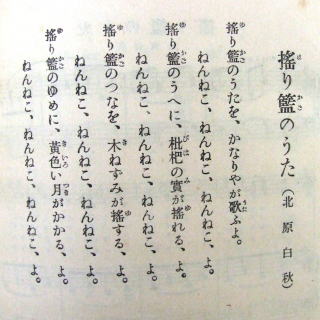 搖り籃のうた（北原白秋）
搖り籃のうたを、かなりやが歌ふよ。
ねんねこ、ねんねこ、ねんねこ、よ。
搖り籃のうへに、枇杷の實が搖れる、よ。
ねんねこ、ねんねこ、ねんねこ、よ。
搖り籃のつなを、木ねずみが搖する、よ。
ねんねこ、ねんねこ、ねんねこ、よ。
搖り籃のゆめに、黃色い月がかかる、よ。
ねんねこ、ねんねこ、ねんねこ、よ。